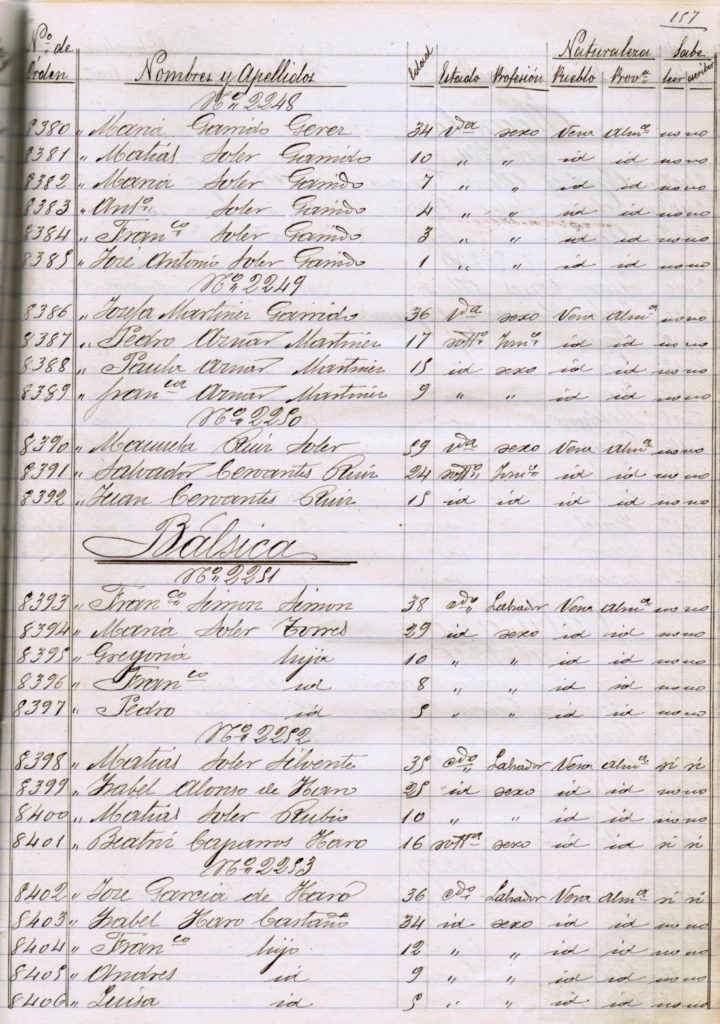 157
Nº de Orden Nombres y Apellidos Edad Estado Profesión Naturaleza Pueblo Provª Sabe leer escribir
Nº 2248
8380 " Maria Garrido Gerez 34 vda sexo Vera Almª no no
8381 " Matias Soler Garrido 10 " " id id no no
8382 " Maria Soler Garrido 7 " " id id no no
8383 " Antº Soler Garrido 4 " " id id no no
8384 " Franco Soler Garrido 3 " " id id no no
8385 " Jose Antonio Soler Garrido 1 " " id id no no
Nº 2249
8386 " Josefa Martinez Garrido 36 vda sexo Vera Almª no no
8387 " Pedro Aznar Martinez 17 solto Jornº id id no no
8388 " Paula Aznar Martinez 15 id sexo id id no no
8389 " Franca Aznar Martinez 9 " " id id no no
Nº 2250
8390 " Manuela Ruiz Soler 59 vda sexo Vera Almª no no
8391 " Salvador Cervantes Ruiz 24 solto Jornº id id no no
8392 " Juan Cervantes Ruiz 15 id id id id no no
Bálsica
Nº 2251
8393 " Franco Simon Simon 38 cdo Labrador Vera Almª no no
8394 " Maria Soler Torres 29 id sexo id id no no
8395 " Gregoria hija 10 " " id id no no
8396 " Franco id 8 " " id id no no
8397 " Pedro id 5 " " id id no no
Nº 2252
8398 " Matias Soler Silvente 35 cdo Labrador Vera Almª si si
8399 " Isabel Alonso de Haro 25 id sexo id id no no
8400 " Matias Soler Rubio 10 " " id id no no
8401 " Beatriz Caparros Haro 16 solta sexo id id si si
Nº 2253
8402 " Jose Garcia de Haro 36 cdo Labrador Vera Almª si si
8403 " Isabel Haro Castaño 34 id sexo id id no no
8404 " Franco hijo 12 " " id id no no
8405 " Andres id 9 " " id id no no
8406 " Luisa id 5 " " id id no no